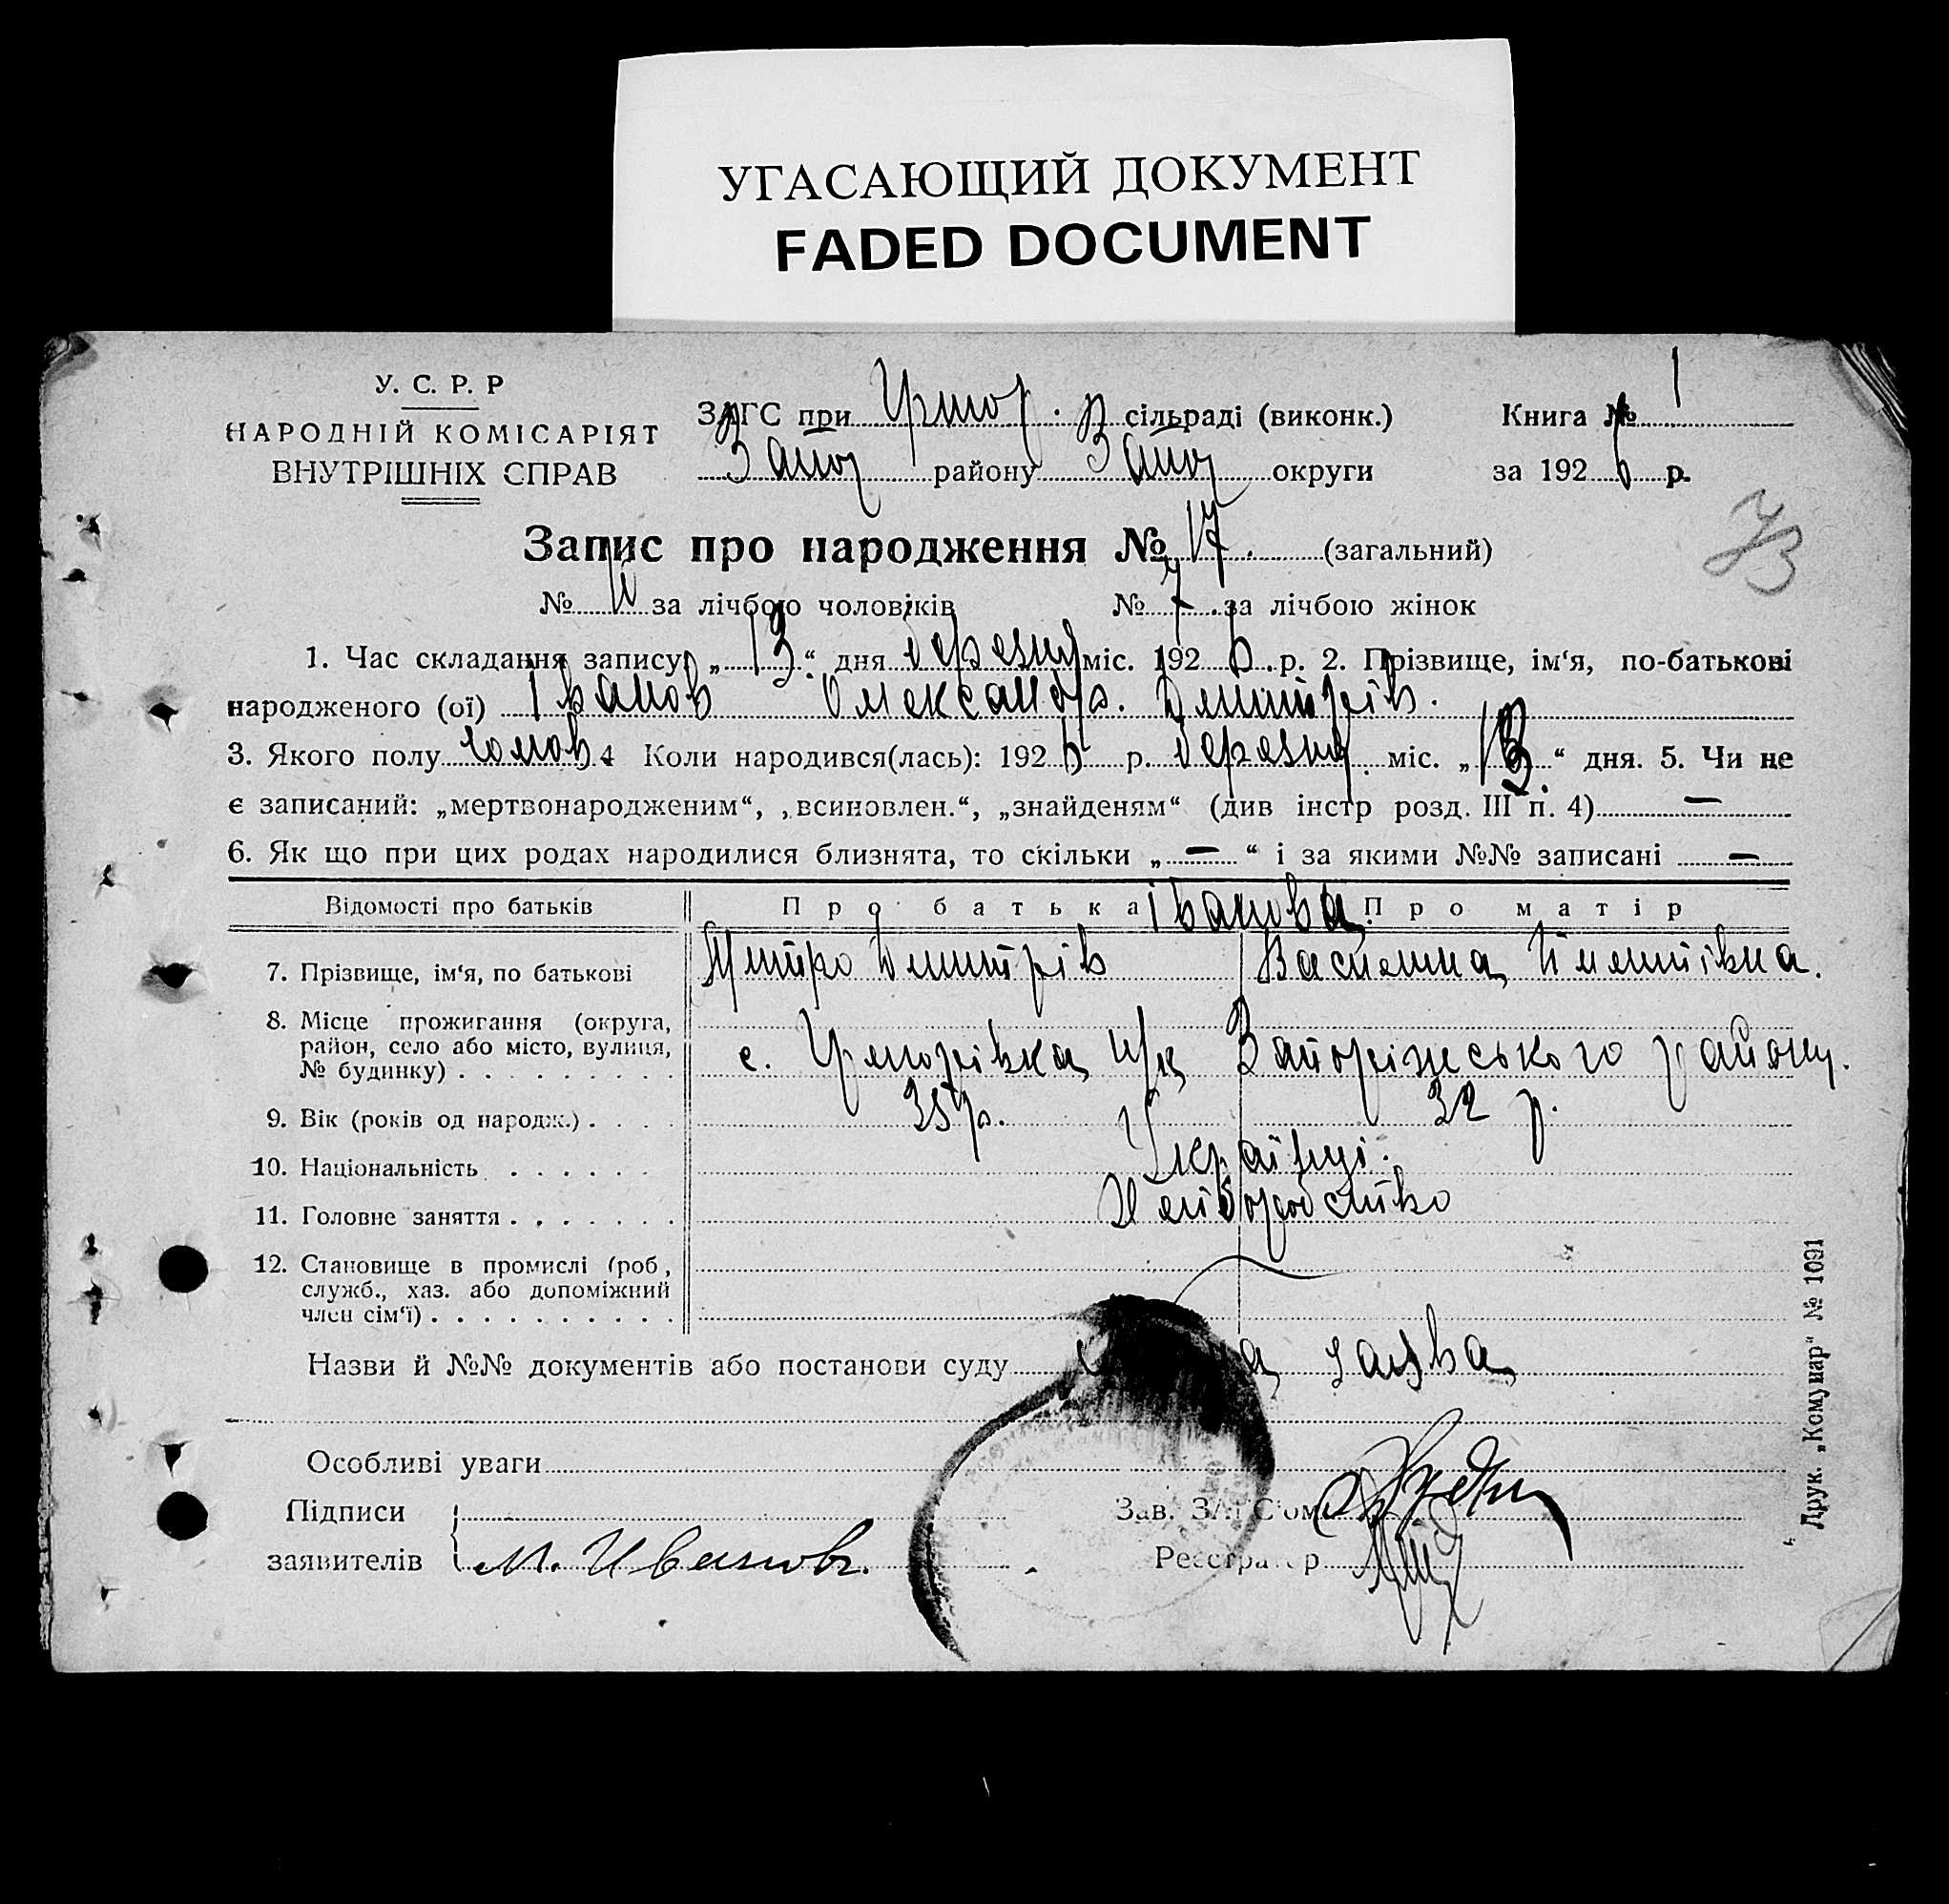 УГАСАЮЩИЙ ДОКУМЕНТ
FADED DOCUMENT
У. С. Р. Р
НАРОДНІЙ КОМІСАРІЯТ
ВНУТРІШНІХ СПРАВ
ЗАГС при сільраді (виконк.)
Запор району Запор округи
Книга № 1
за 1926 р.
Запис про народження № 17. (загальний)
№ 10 за лічбою чоловіків № 7. за лічбою жінок
73
1. Час складання запису „13“ дня березня міс. 1926. р. 2. Прізвище, ім‘я, по-батькові
народженого (ої) Іванов Олександр. Дмитрів.
3. Якого полу чолов 4 Коли народився(лась): 1926 р. березня міс. „13“ дня. 5. Чи не
є записаний: „мертвонародженим“, „всиновлен.“, „знайденям“ (див інстр розд. III п. 4) —
6. Як що при цих родах народилися близнята, то скільки „—“ і за якими №№ записані —
Відомості про батьків Про батька Іванова Про матір
7. Прізвище, ім‘я, по батькові Дмитро Дмитрів Василина
8. Місце прожигання (округа,
район, село або місто, вулиця,
№ будинку)
с. Григорівка Запоріжського району.
9. Вік (років од народж.) 35 р. 32 р.
10. Національність Українці.
11. Головне заняття Хліборобство
12. Становище в промислі (роб,
служб., хаз. або допоміжний
член сім‘ї)
Назви й №№ документів або постанови суду заява
Особливі уваги
Підписи
заявителів М. Ивановъ.
Зав. ЗАГС‘ом
Реєстратор
Друк. „Комунар“ № 1091